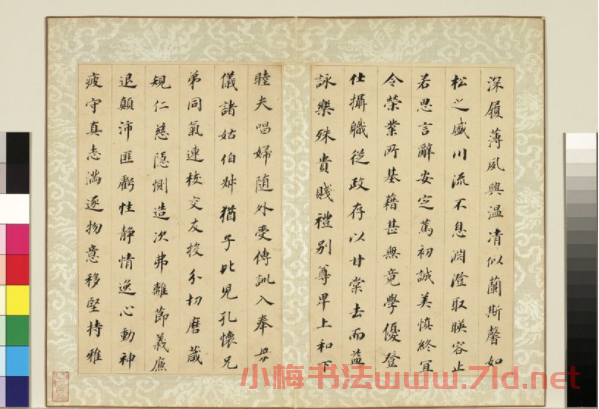 深履薄夙興温凊似蘭斯馨如
松之盛川流不息淵澄取暎容止
若思言辭安定篤初誠美慎終宜
令榮業所基籍甚無竟學優登
仕攝職從政存以甘棠去而益
詠樂殊貴賤禮別尊卑上和下
睦夫唱婦随外受傅訓入奉母
儀諸姑伯叔猶子比兒孔懷兄
弟同氣連枝交友投分切磨箴
規仁慈隱惻造次弗離節義廉
退顛沛匪虧性静情逸心動神
疲守真志滿逐物意移堅持雅
小梅书法www.7ld.net